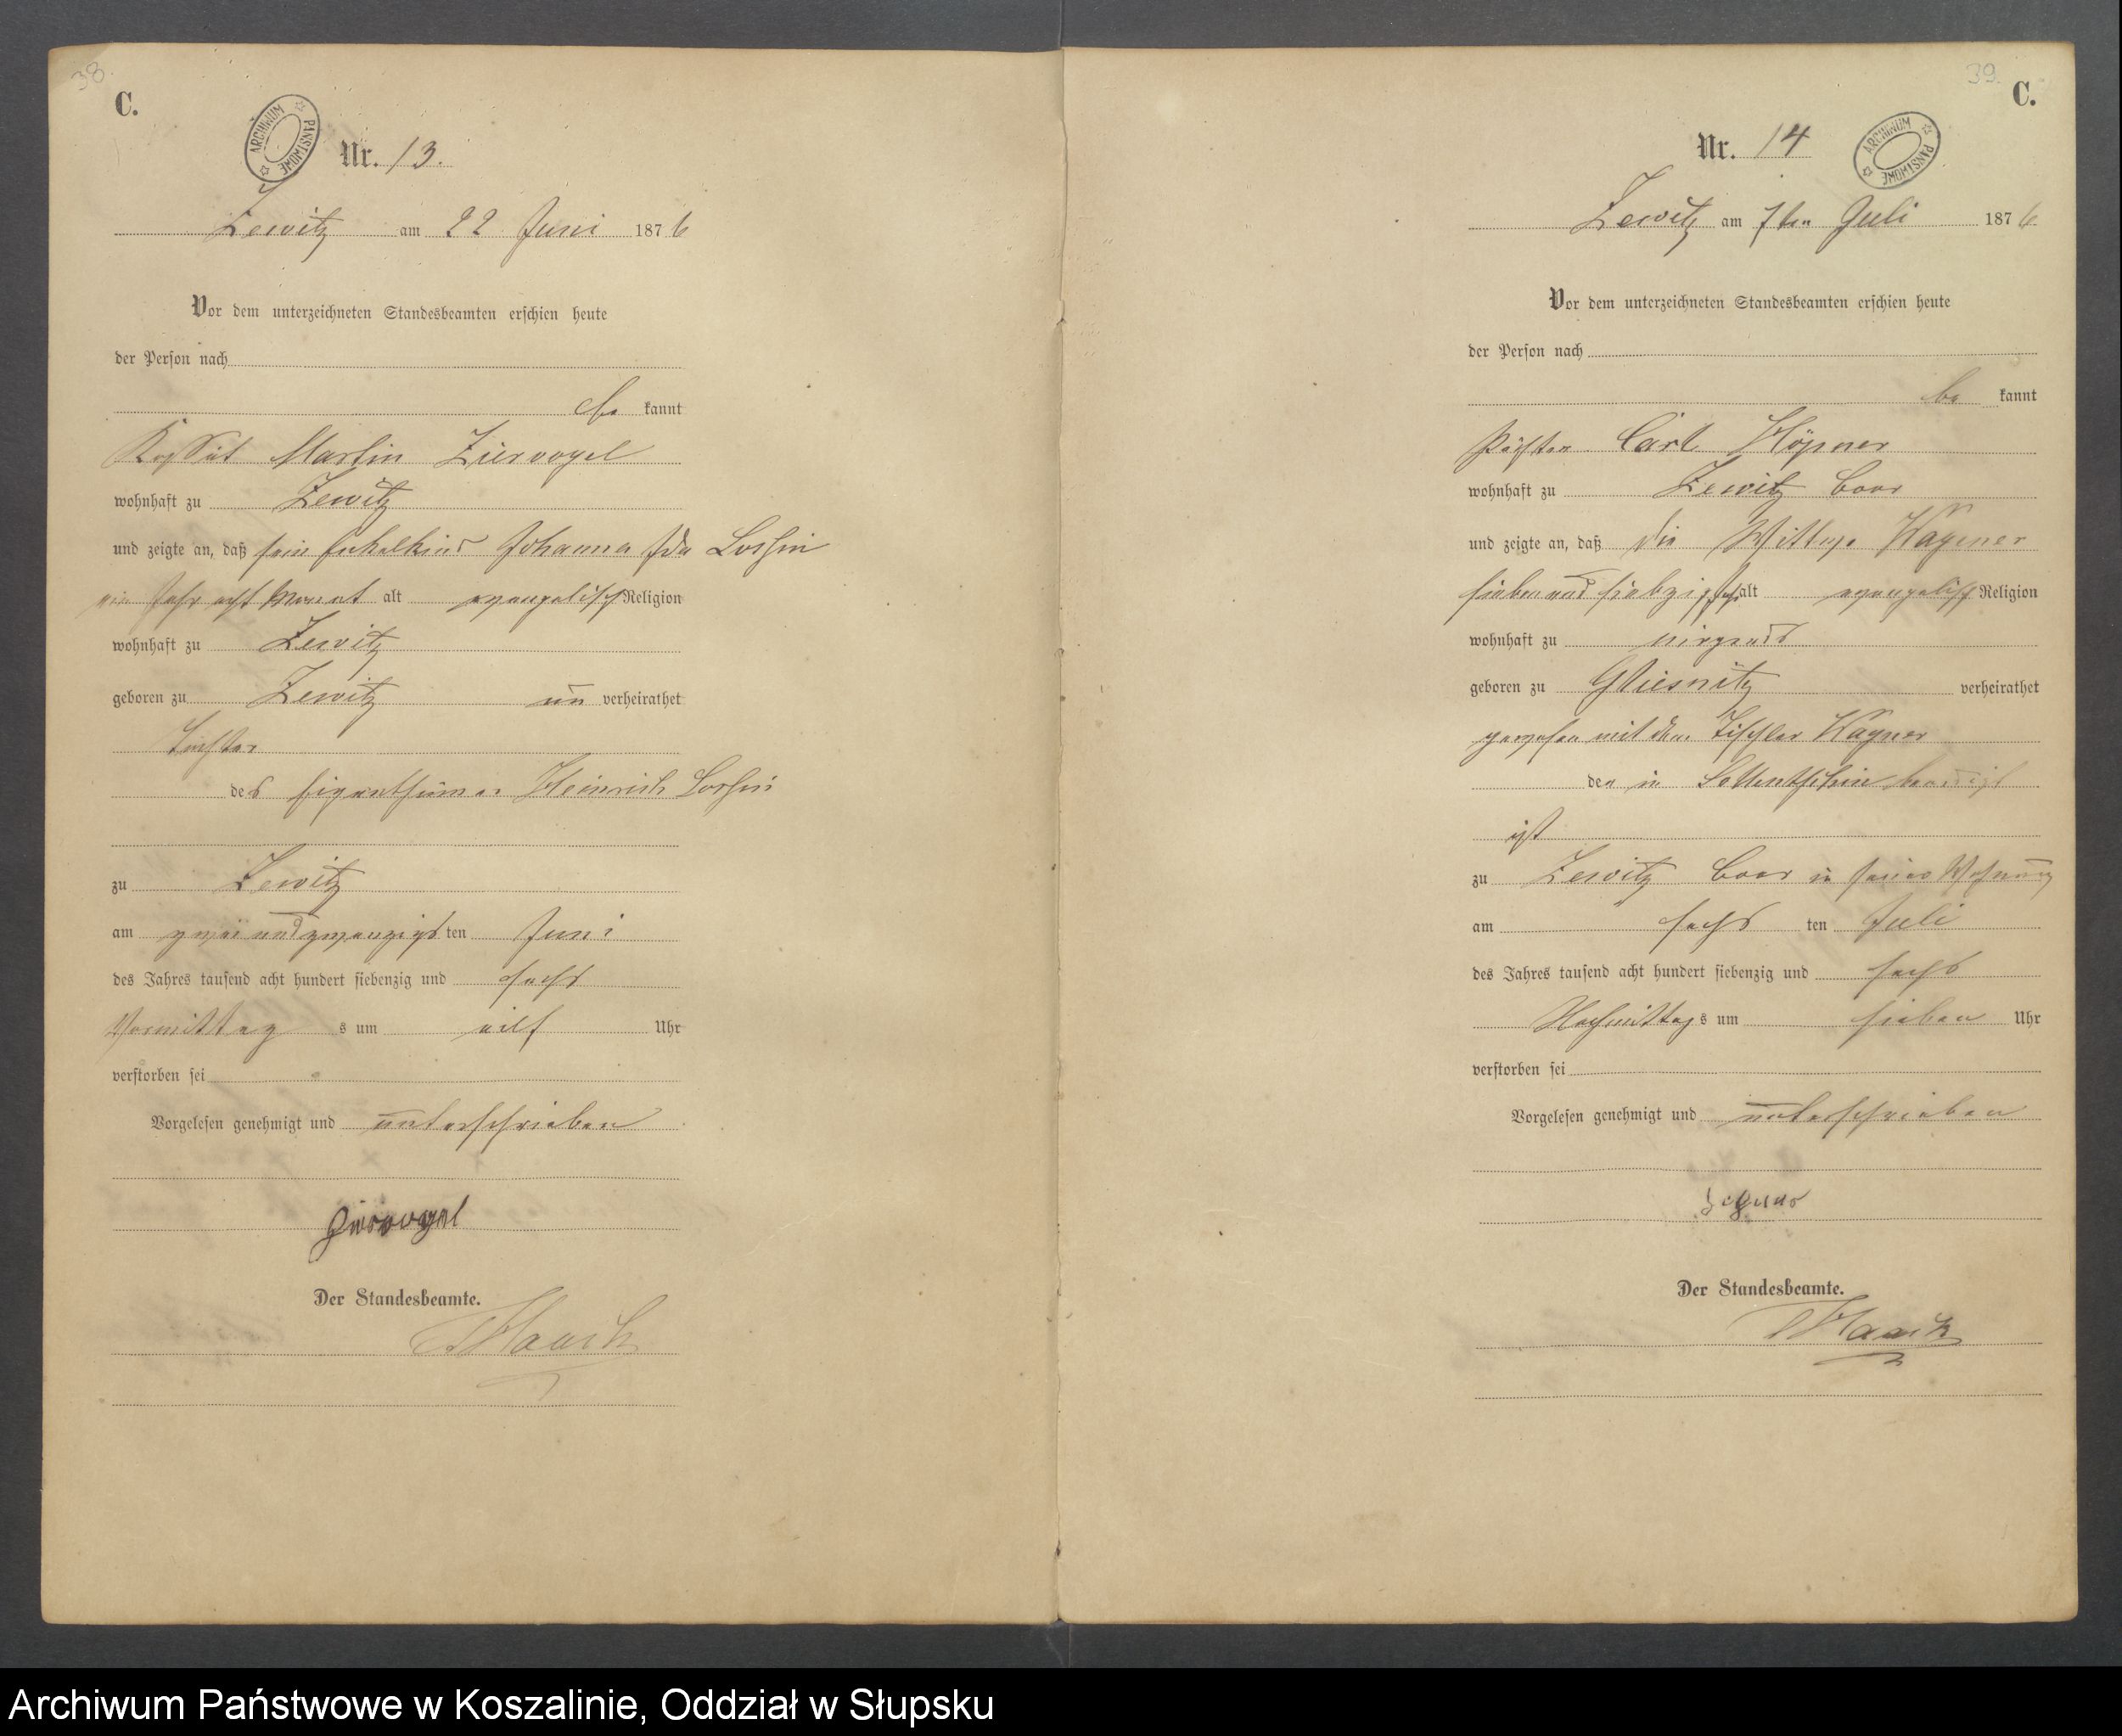 38.
C.
ARCHIWUM PAŃSTWOWE
Nr. 13.
Zewitz am 22 Juni 1876
Vor dem unterzeichneten Standesbeamten erschien heute
der Person nach
be kannt
Kossät Martin Ziervogel
wohnhaft zu Zewitz
und zeigte an, daß sein Enkelkind Johanna Ida Loshin
ein Jahr acht Monat alt evangelisch Religion
wohnhaft zu Zewitz
geboren zu Zewitz un verheirathet
Tochter
des Eigenthümer Heinrich Loshin
zu Zewitz
am zwei und zwanzigst ten Juni
des Jahres tausend acht hundert siebenzig und sechs
Vormittag s um eilf Uhr
verstorben sei
Vorgelesen genehmigt und unterschrieben
Ziervogel
Der Standesbeamte.
Haack
39.
C.
Nr. 14
ARCHIWUM PAŃSTWOWE
Zewitz am 7ten Juli 1876
Vor dem unterzeichneten Standesbeamten erschien heute
der Person nach
be kannt
Pächter Carl Höpner
wohnhaft zu Zewitz Boor
und zeigte an, daß die Wittwe Wagener
sieben und siebzig Jahr alt evangelisch Religion
wohnhaft zu nirgends
geboren zu Gliesnitz verheirathet
gewesen mit dem Tischler Wagner
der in beerdigt
ist
zu Zewitz Boor in seiner Wohnung
am sechs ten Juli
des Jahres tausend acht hundert siebenzig und sechs
Nachmittag s um sieben Uhr
verstorben sei
Vorgelesen genehmigt und unterschrieben
Der Standesbeamte.
Haack
Archiwum Państwowe w Koszalinie, Oddział w Słupsku